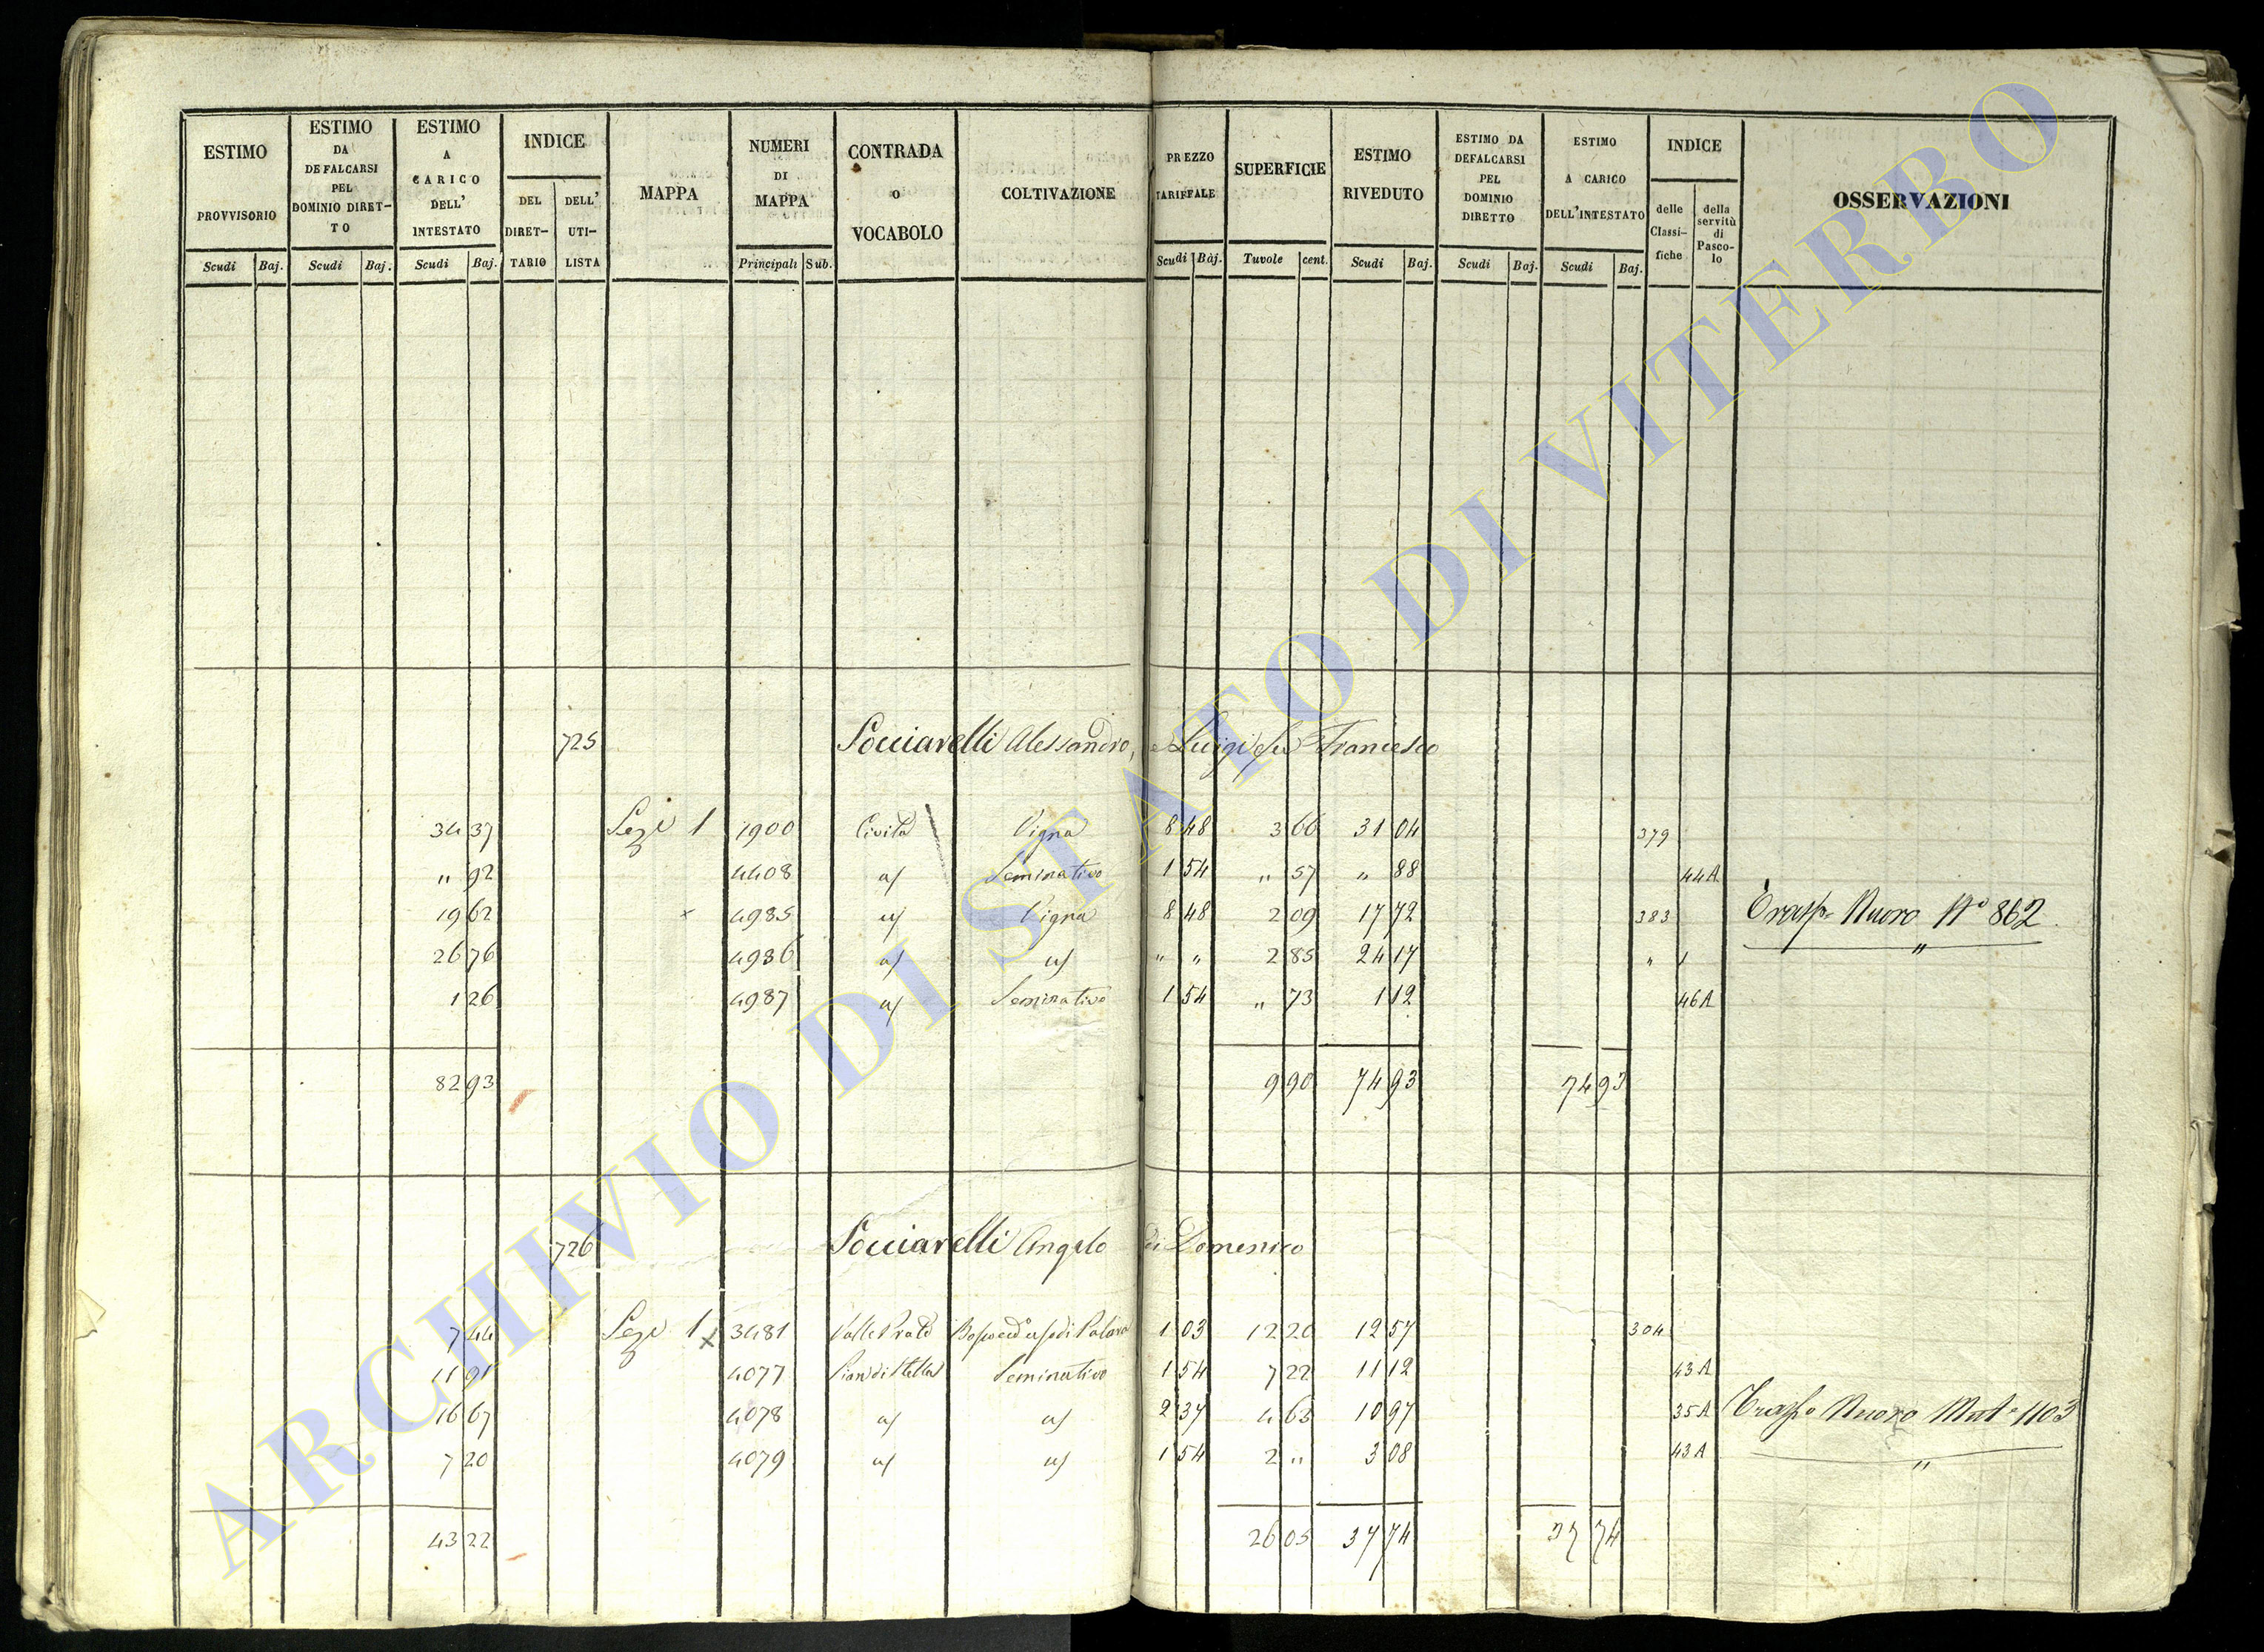 ESTIMO PROVVISORIO
Scudi Baj.
ESTIMO DA DEFALCARSI PEL DOMINIO DIRET-TO
Scudi Baj.
ESTIMO A CARICO DELL' INTESTATO
Scudi Baj.
INDICE
DEL DIRET-TARIO
DELL' UTI-LISTA
MAPPA
NUMERI DI MAPPA
Principali Sub.
CONTRADA O VOCABOLO
COLTIVAZIONE
PREZZO TARIFFALE
Scudi Baj.
SUPERFICIE
Tavole cent.
ESTIMO RIVEDUTO
Scudi Baj.
ESTIMO DA DEFALCARSI PEL DOMINIO DIRETTO
Scudi Baj.
ESTIMO A CARICO DELL'INTESTATO
Scudi Baj.
INDICE
delle Classi-fiche
della servitù di Pasco-lo
OSSERVAZIONI
725 Socciarelli Alessandro, e Luigi fu Francesco
34 37 Seze 1 1900 Civita Vigna 8 48 3 66 31 04 379
" 92 4408 a/ Seminativo 1 54 " 57 " 88 44A
19 62 x 4985 a/ Vigna 8 48 2 09 17 72 383 Trasp. Nuovo No 862
26 76 4986 a/ a/ " " 2 85 24 17 " "
1 26 4987 a/ Seminativo 1 54 " 73 1 12 46A
82 93 9 90 74 93 74 93
726 Socciarelli Angelo di Domenico
7 44 Seze 1 x 3481 Valle Prato 1 03 12 20 12 57 304
11 91 4077 Pian di Stella Seminativo 1 54 7 22 11 12 43A
16 67 4078 a/ a/ 2 37 4 63 10 97 35A Traspo Nuovo 1103
7 20 4079 a/ a/ 1 54 2 " 3 08 43A "
43 22 26 05 37 74 37 74
ARCHIVIO DI STATO DI VITERBO